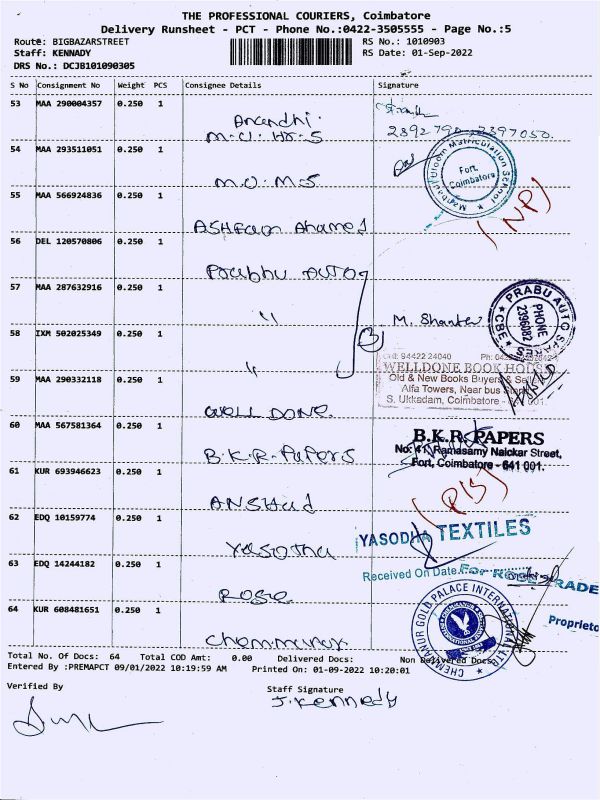 THE PROFESSIONAL COURIERS, Coimbatore
Delivery Runsheet - PCT - Phone No.:0422-3505555 - Page No.:5
Route: BIGBAZARSTREET RS No.: 1010903
Staff: KENNADY RS Date: 01-Sep-2022
DRS No.: DCJB101090305
S No Consignment No Weight PCS Consignee Details Signature
53 MAA 290004357 0.250 1
Anandhi
M.U.H.S.S
2392794 2397050.
54 MAA 293511051 0.250 1
M.U.M.S
Manbaul Uloom Matriculation School
Fort,
Coimbatore
55 MAA 566924836 0.250 1
Ashfaq Ahamed
(NP)
56 DEL 120570806 0.250 1
Prabhu Auto
57 MAA 287632916 0.250 1
"
(3) M. Shanthi
PRABU AUTO SPARES
CBE
PHONE
2396082
58 IXM 502025349 0.250 1
"
Cell: 94422 24040 Ph: 0422
WELLDONE BOOK HOUSE
Old & New Books Buyers & Sell
Alfa Towers, Near bus
S. Ukkadam, Coimbatore - 641 001.
59 MAA 290332118 0.250 1
WELL DONE.
60 MAA 567581364 0.250 1
B.K.R. Papers
B.K.R. PAPERS
No: 41, Ramasamy Naickar Street,
Fort, Coimbatore - 641 001.
61 KUR 693946623 0.250 1
Anshad
62 EDQ 10159774 0.250 1
Yasotha
YASODHA TEXTILES
Received On Date
63 EDQ 14244182 0.250 1
Rose
For ROSE TRADE
Proprieto
64 KUR 608481651 0.250 1
Chemmanur
CHEMMANUR GOLD PALACE INTERNATIONAL LTD
Total No. Of Docs: 64 Total COD Amt: 0.00 Delivered Docs: Non Delivered Docs:
Entered By :PREMAPCT 09/01/2022 10:19:59 AM Printed On: 01-09-2022 10:20:01
Verified By Staff Signature
J. Kennedy